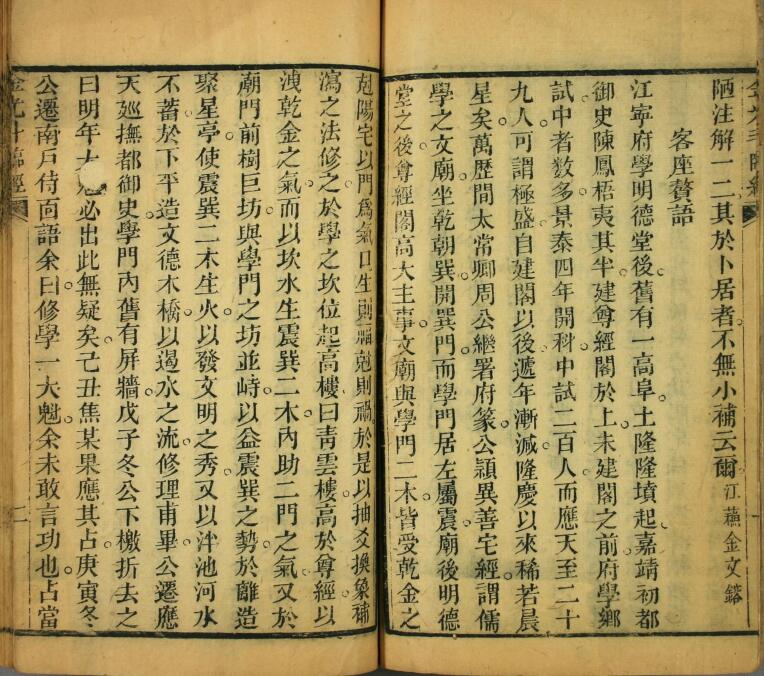 陋注解一二其於卜居者不無小補云爾江蘇金文鎔
客座贅語
江寧府學明德堂後舊有一高阜土隆隆墳起嘉靖初都
御史陳鳳梧夷其半建尊經閣於上未建閣之前府學鄉
試中者数多景泰四年開科中試二百人而應天至二十
九人可謂極盛自建閣以後遞年漸減隆慶以來稀若晨
星矣萬歷間太常卿周公繼署府篆公頴異善宅經謂儒
學之文廟坐乾朝巽開巽門而學門居左屬震廟後明德
堂之後尊經閣高大主事文廟與學門二木皆受乾金之
尅陽宅以門爲氣口生則福尅則禍於是以抽爻換象補
瀉之法修之於學之坎位起高樓曰靑雲樓高於尊經以
洩乾金之氣而以坎水生震巽二木內助二門之氣又於
廟門前樹巨坊與學門之坊並峙以益震巽之勢於離造
聚星亭使震巽二木生火以發文明之秀又以泮池河水
不蓄於下平造文德木橋以遏水之流修理甫畢公遷應
天廵撫都御史學門內舊有屏牆戊子冬公下檄折去之
曰明年大魁必出此無疑矣己丑焦某果應其占庚寅冬
公遷南戶侍面語余曰修學一大魁余未敢言功也占當
二